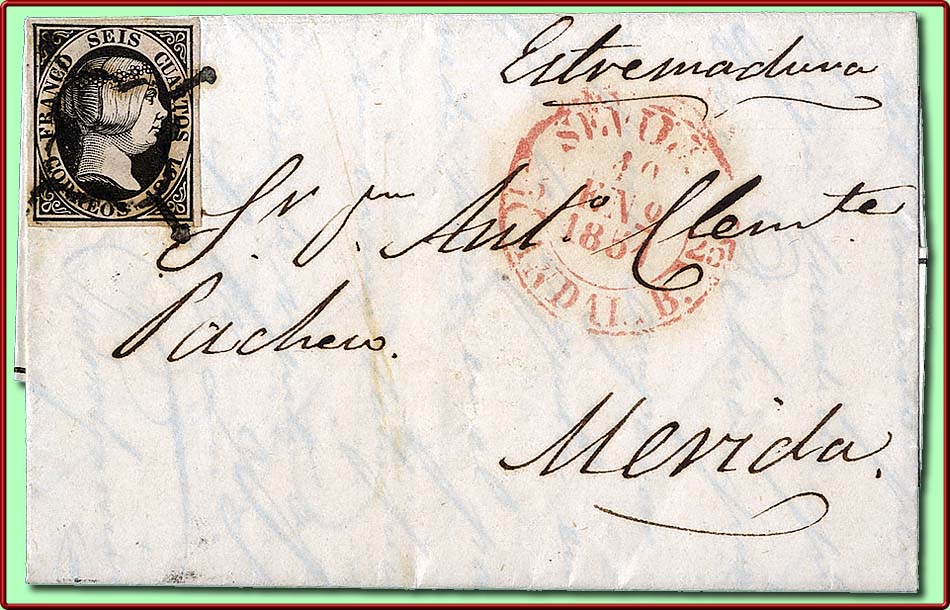 FRANCO SEIS CUARTOS 1851
CORREOS
Estremadura
SEVILLA
10
ENº
1857
25
ANDAL. B.
Sr. Dn Antº. Clemte
Pacheco.
Merida.